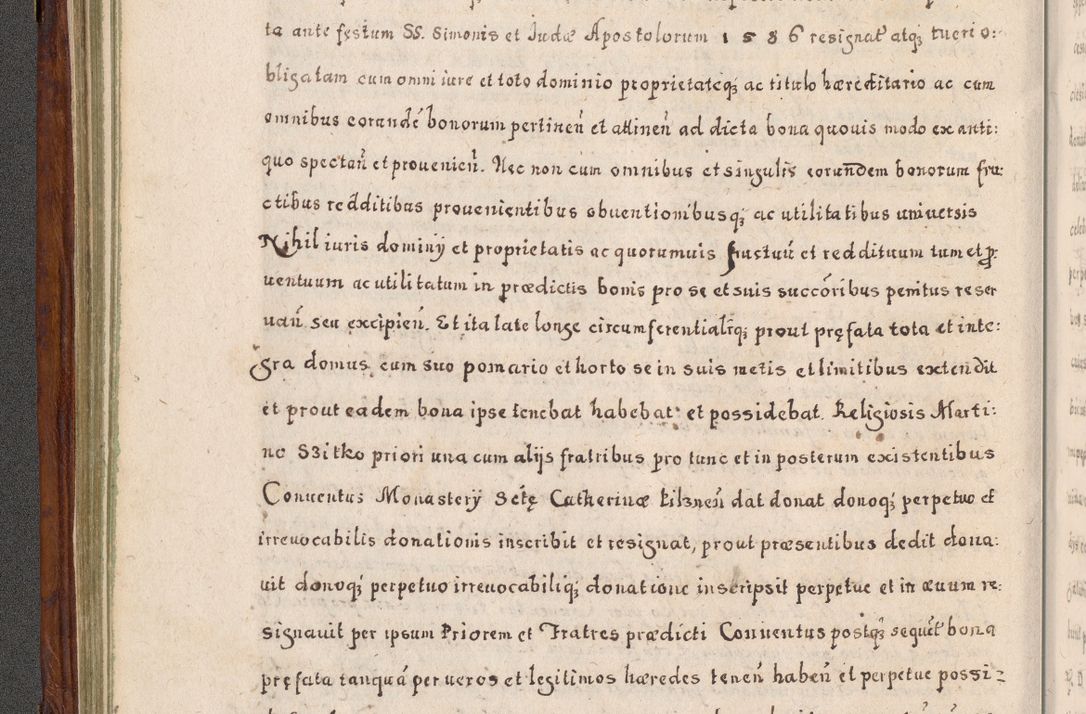 ta ante festum SS. Simonis et Judæ Apostolorum 1586 resignat atq; tueri o:
bligatam cum omni iure et toto dominio proprietateq; ac titulo hæreditario ac cum
omnibus eorundé bonorum pertineñ et attineñ ad dicta bona quouis modo ex anti:
quo spectañ et prouenieñ. Nec non cum omnibus et singulis eorundem bonorum fru:
ctibus redditibus prouenientibus obuentionibusq; ac utilitatibus uniuersis
Nihil iuris dominÿ et proprietatis ac quorumuis fructuũ et reddituum tum et pr:
uentuum ac utilitatum in prædictis bonis pro se et suis succóribus penitus reser
uañ seu excipieñ. Et ita late longe circumferentialiq; prout pręfata tota et inte:
gra domus cum suo pomario et horto se in suis metis et limitibus extendit
et prout eadem bona ipse tenebat habebat et possidebat. Religiosis Marti:
no Szitko priori una cum alijs fratribus pro tunc et in posterum existentibus
Conuentus Monastery Sctę Catherinæ Eilsneñ dat donat donoq; perpetuo et
irreuocabilis donationis inscribit et resignat, prout præsentibus dedit dona:
uit donoq; perpetuo irreuocabiliq; donatione inscripsit perpetue et in æuum re:
signauit per ipsum Priorem et Fratres prædicti Conuentus postq; sequét bona
pręfata tanquá per ueros et legitimos hæredes teneñ habeñ et perpetue possi-